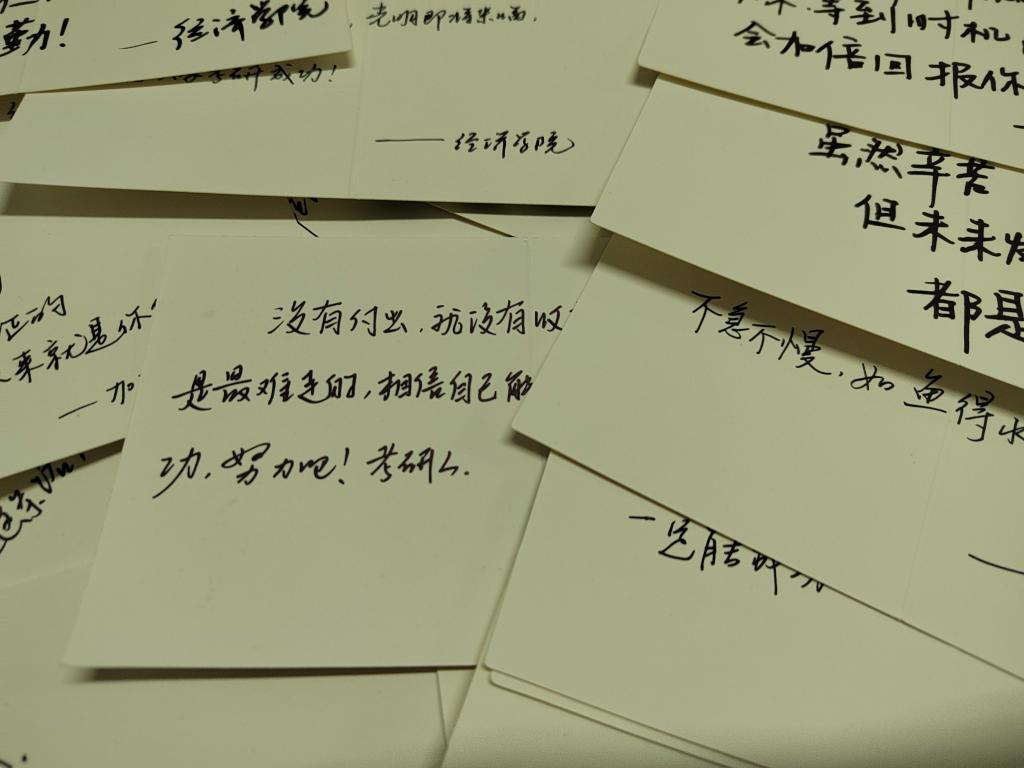 — 经济学院
考研成功！
光明即将来临。
—— 经济学院
等到时机
会加倍回报你
虽然辛苦
但未来
都是
来就是你
— 加
没有付出，就没有收
是最难走的，相信自己能
功，努力吧！考研人.
不急不慢，如鱼得水
一定能成功